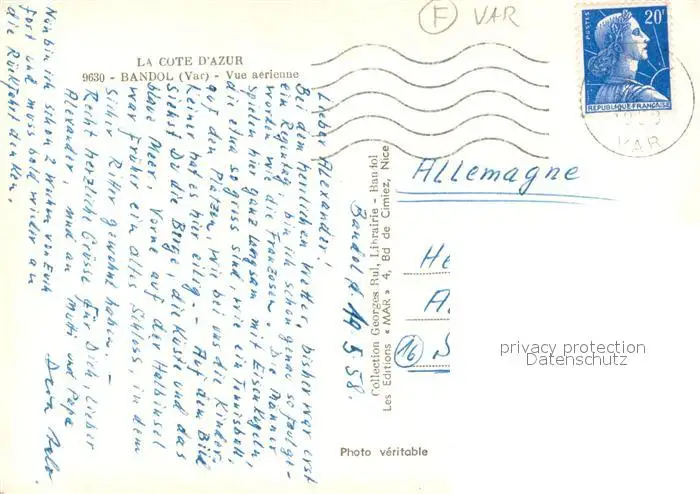 F VAR
LA COTE D'AZUR
9630 - BANDOL (Var) - Vue aérienne
POSTES
20F
REPUBLIQUE FRANÇAISE
VAR
Bandol, d. 19.5.58.
Lieber Alexander!
Bei dem herrlichen Wetter, bisher war erst
ein Regentag bin ich schon genau so faulge-
worden wie die Franzosen. Die Männer
spielen hier ganz langsam mit Eisenkugeln,
die etwa so gross sind, wie ein Tennisball,
auf den Plätzen, wie bei uns die Kinder.
Keiner hat es hier eilig. - Auf dem Bild
Siehst Du die Berge, die Küste und das
blaue Meer. Vorne auf der Halbinsel
war früher ein altes Schloss, in dem
sicher Ritter gewohnt haben. -
Recht herzliche Grüsse für Dich, lieber
Alexander, und an Mutti und Papa
Dein
Nun bin ich schon 2 Wochen von Euch
fort und muss bald wieder an
die Rückfahrt denken.
Collection Georges Rul, Librairie - Bandol
Les Editions « MAR » 4, Bd de Cimiez, Nice
Allemagne
16
privacy protection
Datenschutz
Photo véritable